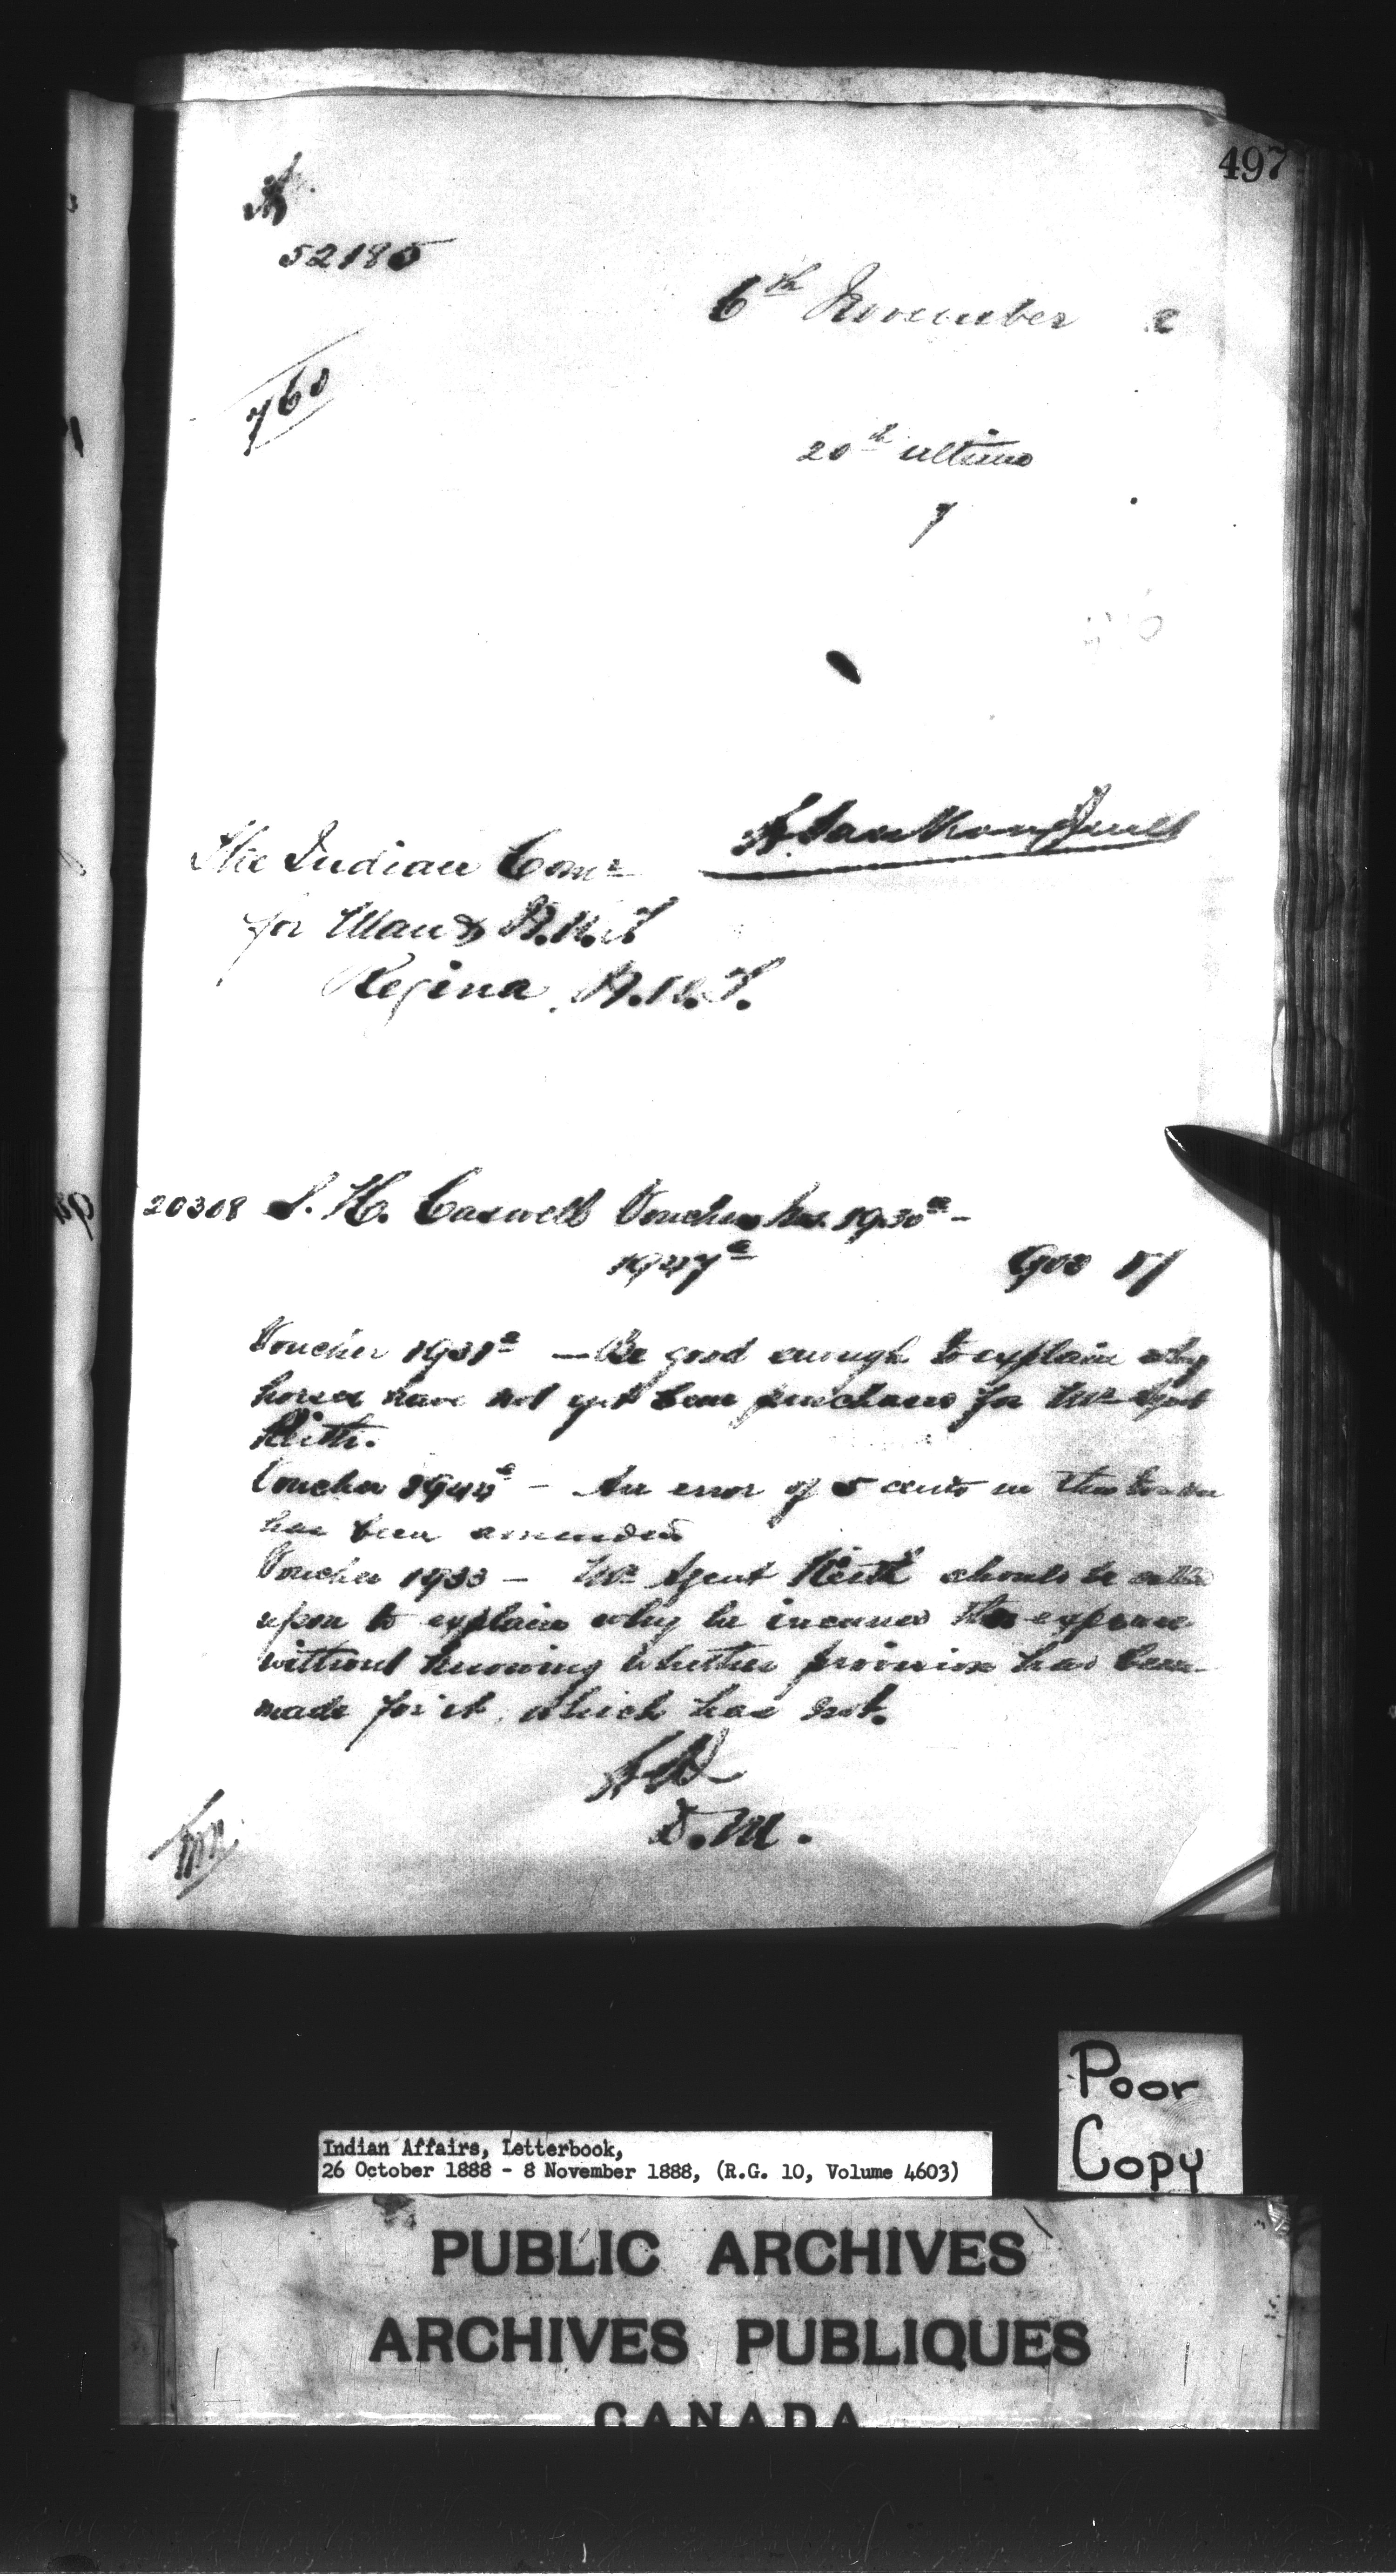 497
52185
6th November 8
760
20th ultimo
7
L. Vankoughnet
The Indian Comr
for Man & N.W.T
Regina, N.W.T.
20308 S. H. Caswell Vouchers Nos. 1930a -
1947a 903 17
Voucher 1931a — Be good enough to explain why
horses have not yet been purchased for Mr Agent
Keith.
Voucher 1944a - An error of 5 cents in this
has been amended
Voucher 1933 - Mr Agent Keith should be called
upon to explain why he incurred this expense
without knowing whether provision has been
made for it, which has not.
D.M.
Poor
Copy
Indian Affairs, Letterbook,
26 October 1888 - 8 November 1888, (R.G. 10, Volume 4603)
PUBLIC ARCHIVES
ARCHIVES PUBLIQUES
CANADA